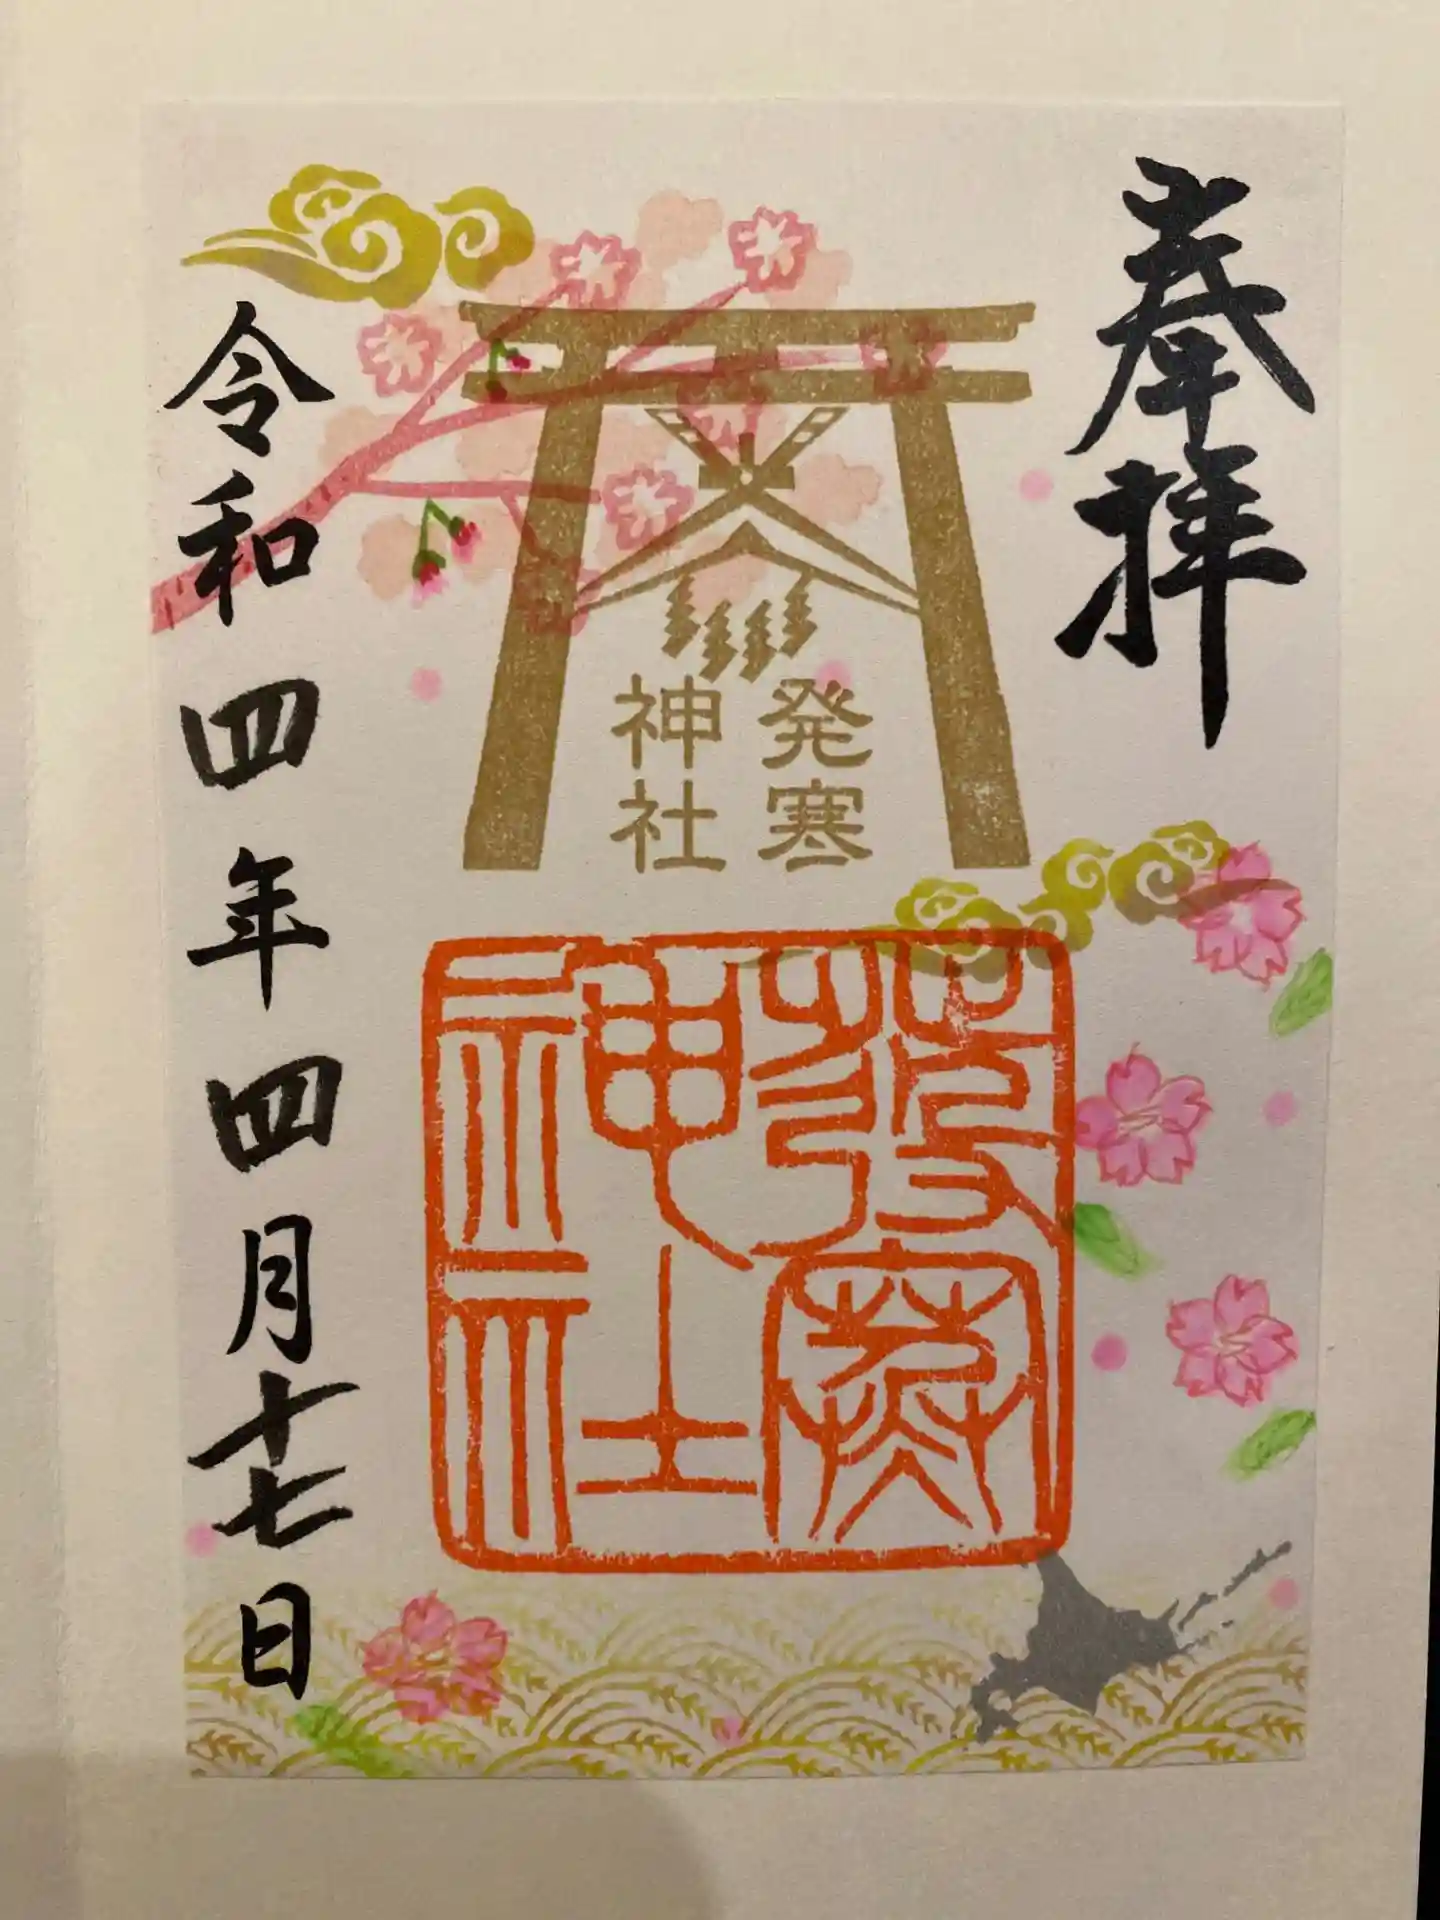 奉拝
発寒
神社
發寒
神社
令和四年四月十七日